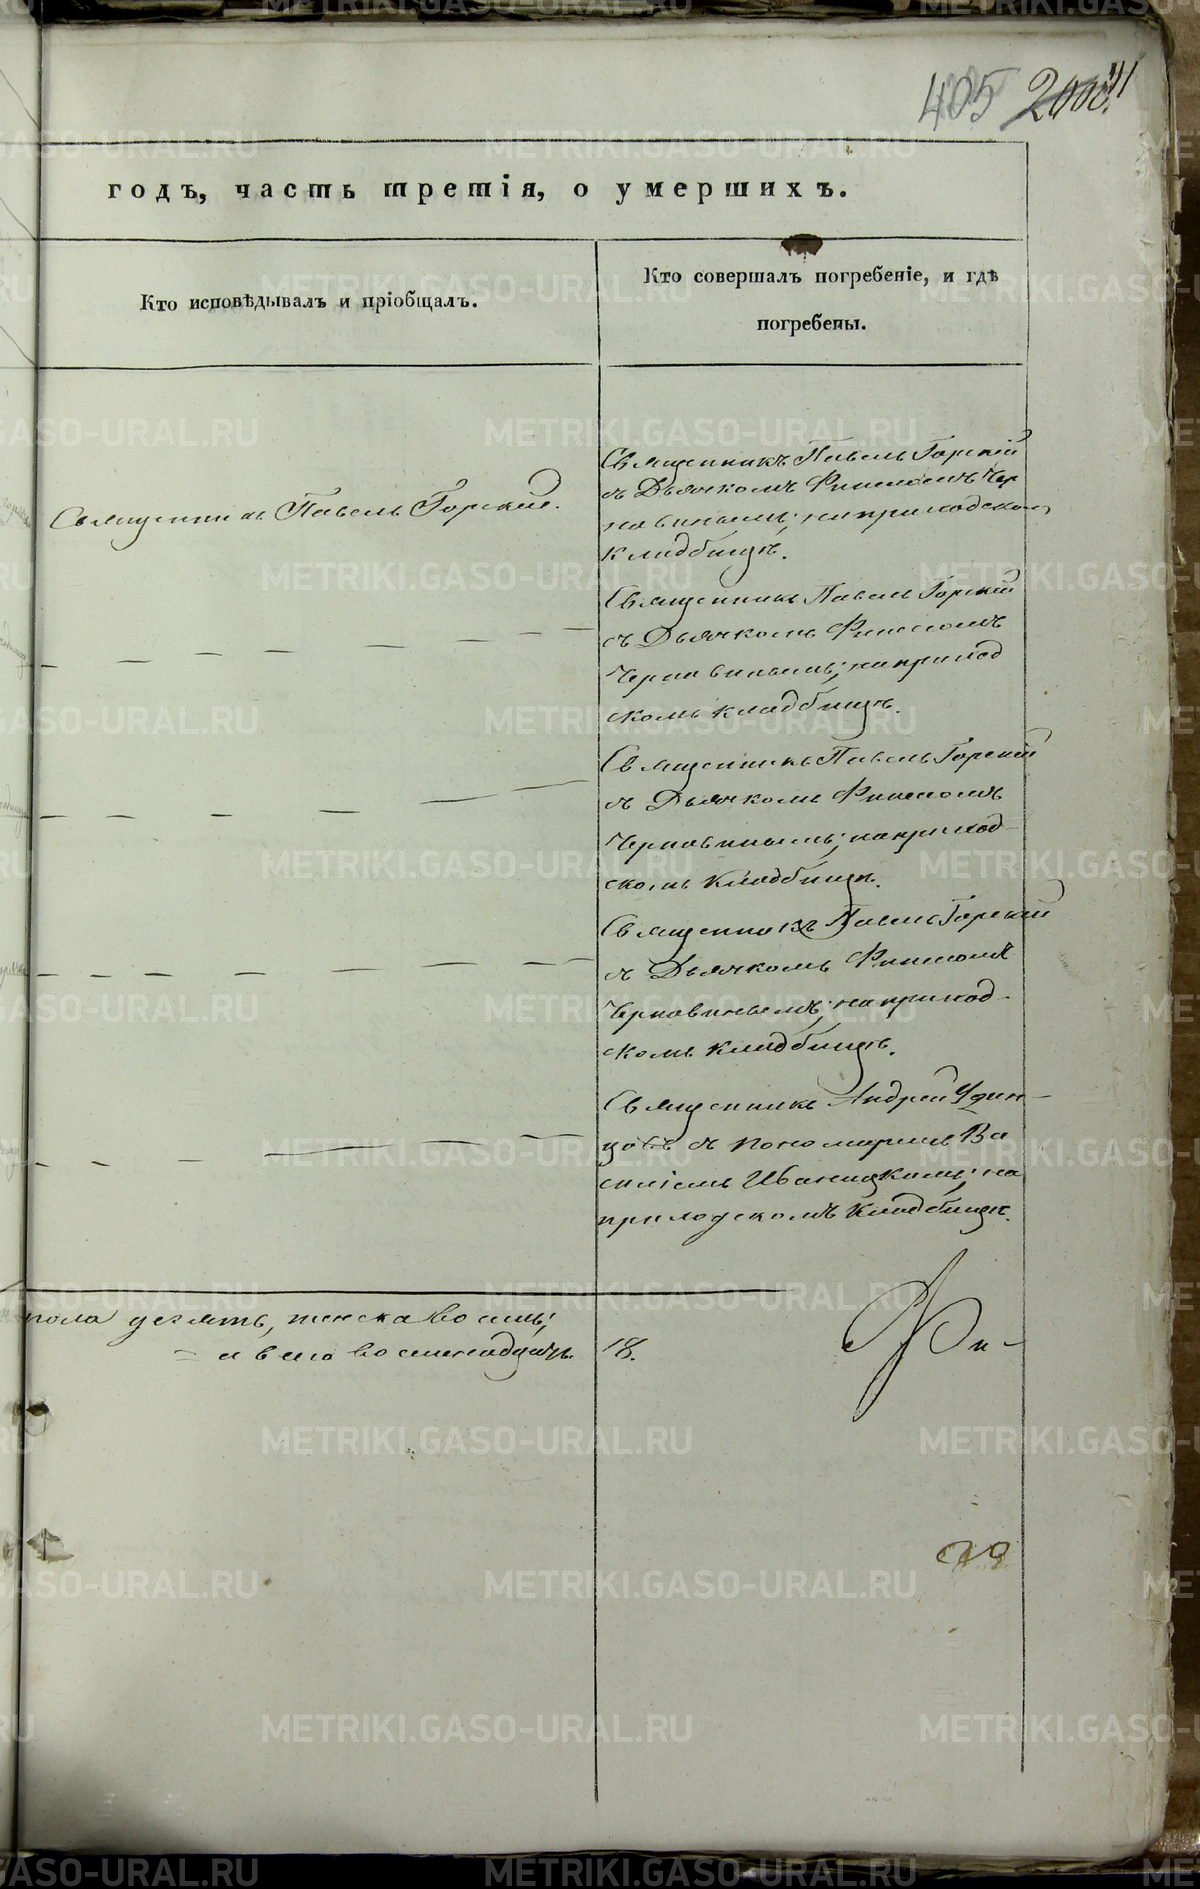 405
годъ, часть третія, о умершихъ.
Кто исповѣдывалъ и пріобщалъ.
Кто совершалъ погребеніе, и гдѣ
погребены.
Священникъ Павелъ Горскій.
Священникъ Павелъ Горскій
съ Дьячкомъ Финесомъ Чер
навинымъ; на приходском
кладбищѣ.
Священникъ Павелъ Горскій
съ Дьячкомъ Финесомъ
Чернавинымъ; на приход
скомъ кладбищѣ.
Священникъ Павелъ Горскій
съ Дьячкомъ Финесомъ
Чернавинымъ; на приход-
скомъ кладбищѣ.
Священникъ Павелъ Горскій
съ Дьячкомъ Финесомъ
Чернавинымъ; на приход-
скомъ кладбищѣ.
Священникъ Андрей Удин-
цовъ съ пономаремъ Ва
силіемъ Иваницкомъ; на
приходскомъ кладбищѣ.
пола десять, женска восемь;
= а всего восемнадцать.
18.
METRIKI.GASO-URAL.RU